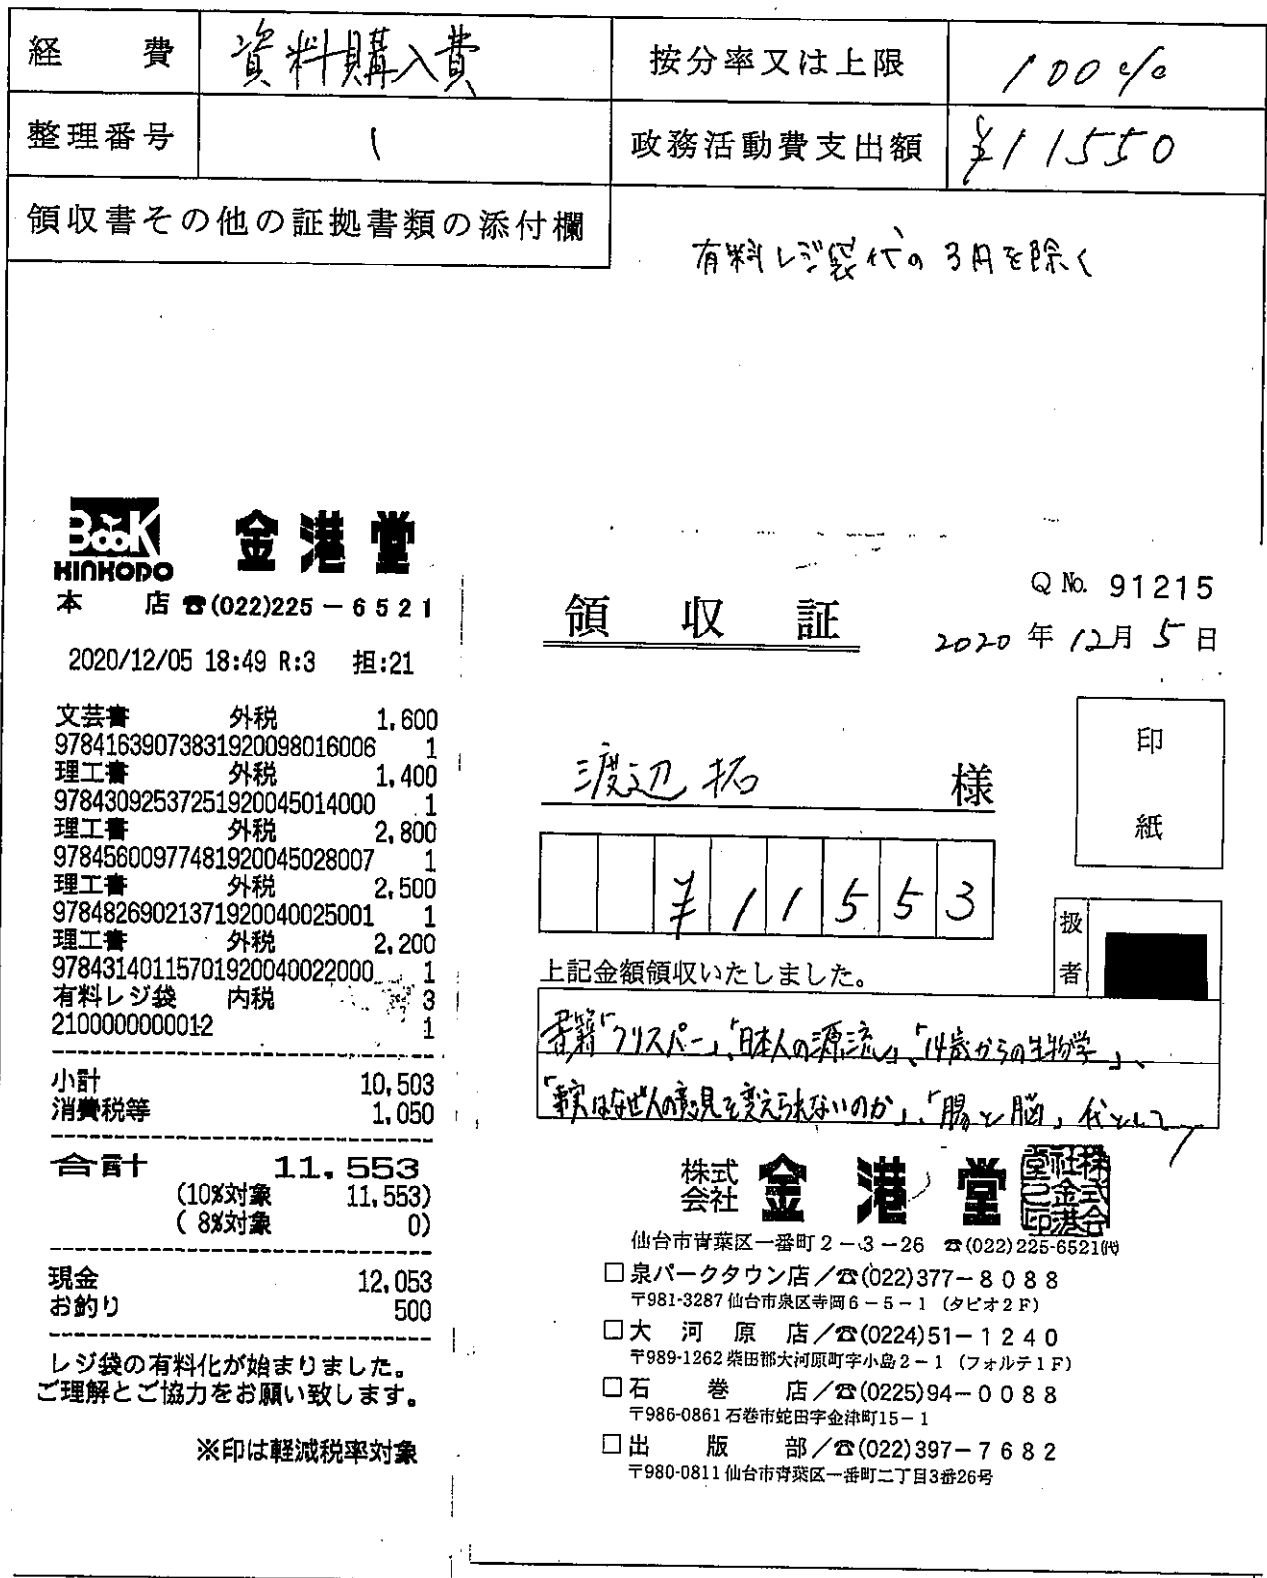 経費 資料購入費 按分率又は上限 100%
整理番号 1 政務活動費支出額 ¥11550
領収書その他の証拠書類の添付欄
有料レジ袋代の3円を除く
BOOK KINKODO 金港堂
本店☎(022)225-6521
2020/12/05 18:49 R:3 担:21
文芸書 外税 1,600
97841639073831920098016006 1
理工書 外税 1,400
97843092537251920045014000 1
理工書 外税 2,800
97845600977481920045028007 1
理工書 外税 2,500
97848269021371920040025001 1
理工書 外税 2,200
97843140115701920040022000 1
有料レジ袋 内税 3
2100000000012 1
小計 10,503
消費税等 1,050
合計 11,553
(10%対象 11,553)
( 8%対象 0)
現金 12,053
お釣り 500
レジ袋の有料化が始まりました。
ご理解とご協力をお願い致します。
※印は軽減税率対象
Q No. 91215
領収証
2020年12月5日
渡辺拓 様
印紙
¥11553
扱者
上記金額領収いたしました。
書籍「クリスパー」、「日本人の源流」、「14歳からの生物学」、
「事実はなぜ人の意見を変えられないのか」、「腸と脳」代として
株式会社 金港堂
株式会社金港堂之印
仙台市青葉区一番町2-3-26 ☎(022)225-6521㈹
□泉パークタウン店/☎(022)377-8088
〒981-3287 仙台市泉区寺岡6-5-1 (タピオ2F)
□大河原店/☎(0224)51-1240
〒989-1262 柴田郡大河原町字小島2-1 (フォルテ1F)
□石巻店/☎(0225)94-0088
〒986-0861 石巻市蛇田字金津町15-1
□出版部/☎(022)397-7682
〒980-0811 仙台市青葉区一番町二丁目3番26号